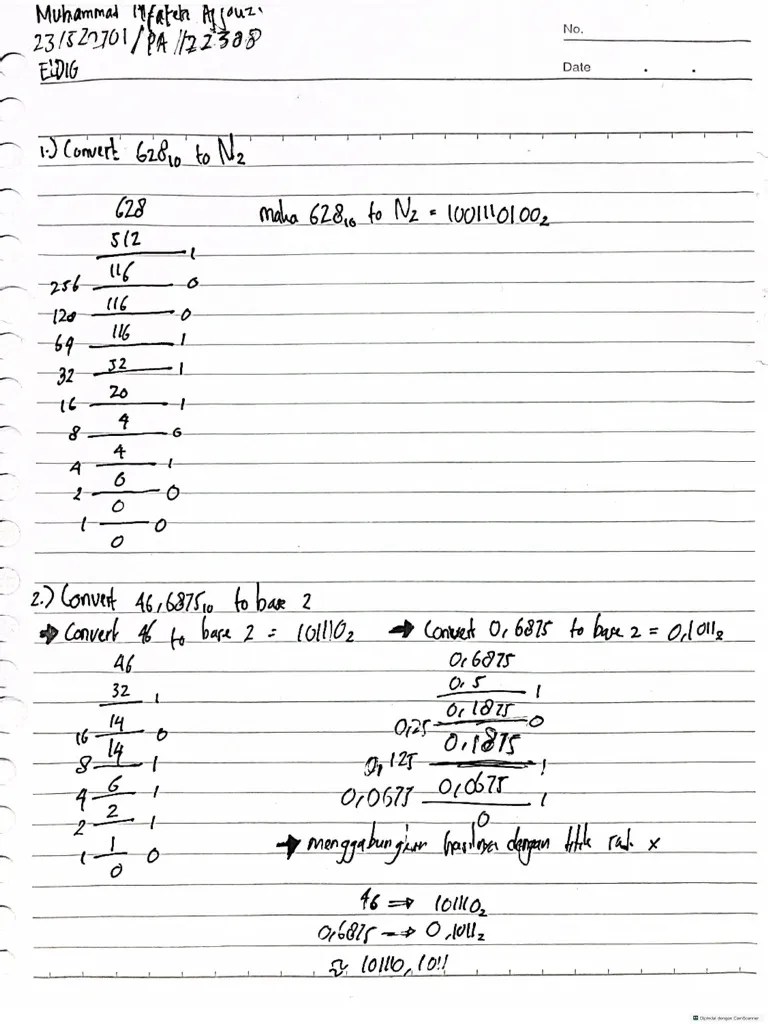 Muhammad
No.
23/522701/PA/22308
Date . .
ELDIG
1.) Convert 628₁₀ to N₂
628
maka 628₁₀ to N₂ = 1001110100₂
512
1
116
256 0
116
128 0
116
64 1
52
32 1
20
16 1
4
8 0
4
4 1
0
2 0
0
1 0
0
2.) Convert 46,6875₁₀ to base 2
→ Convert 46 to base 2 = 101110₂
46
32
1
14
16 0
14
8 1
6
4 1
2
2 1
1
1 0
0
→ Convert 0,6875 to base 2 = 0,1011₂
0,6875
0,5
1
0,1875
0,25 0
0,1875
0,125 1
0,0675
0,0675 1
0
→ menggabungkan hasilnya dengan titik rad x
46 ⇒ 101110₂
0,6875 → 0,1011₂
10110,1011
Dipindai dengan CamScanner